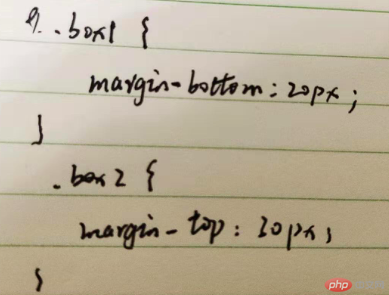 .box1 {
margin-bottom: 20px;
}
.box2 {
margin-top: 30px;
}
php